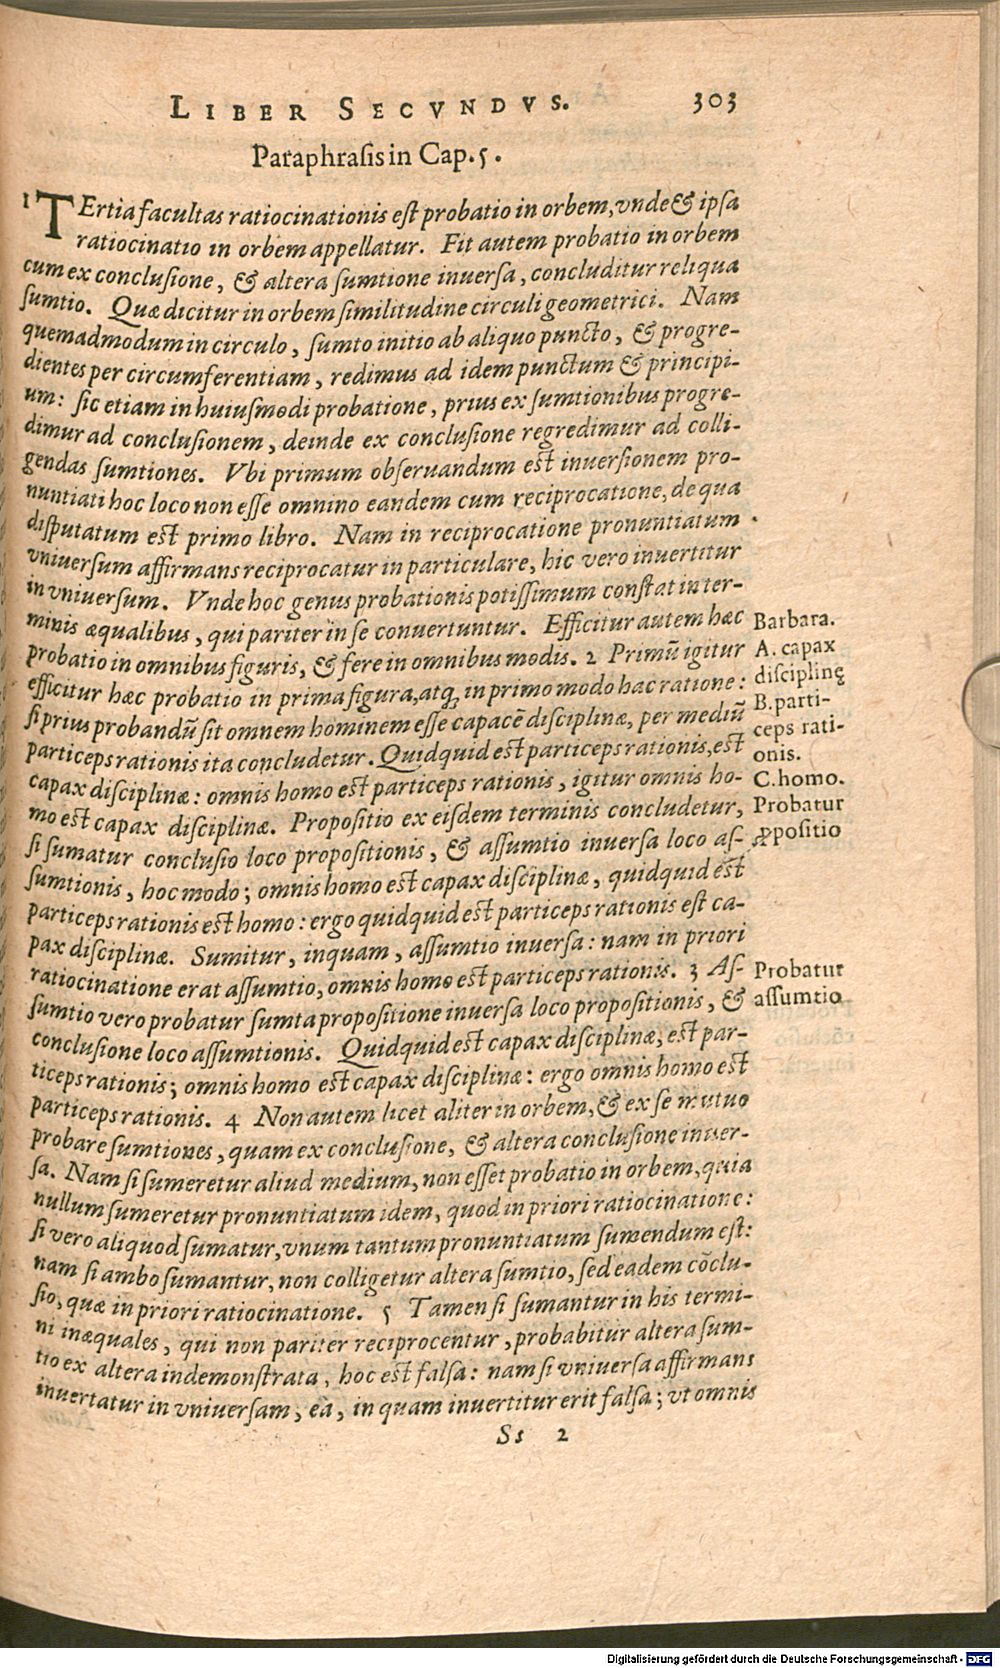 LIBER SECVNDVS. 303
Paraphrasis in Cap. 5.
1 TErtia facultas ratiocinationis est probatio in orbem, vnde & ipsa
ratiocinatio in orbem appellatur. Fit autem probatio in orbem
cum ex conclusione, & altera sumtione inuersa, concluditur reliqua
sumtio. Quæ dicitur in orbem similitudine circuli geometrici. Nam
quemadmodum in circulo, sumto initio ab aliquo puncto, & progre-
dientes per circumferentiam, redimus ad idem punctum & principi-
um: sic etiam in huiusmodi probatione, prius ex sumtionibus progre-
dimur ad conclusionem, deinde ex conclusione regredimur ad colli-
gendas sumtiones. Vbi primum obseruandum est inuersionem pro-
nuntiati hoc loco non esse omnino eandem cum reciprocatione, de qua
disputatum est primo libro. Nam in reciprocatione pronuntiatum
vniuersum affirmans reciprocatur in particulare, hic vero inuertitur
in vniuersum. Vnde hoc genus probationis potissimum constat in ter-
minis æqualibus, qui pariter in se conuertuntur. Efficitur autem hæc
probatio in omnibus figuris, & fere in omnibus modis. 2 Primũ igitur
efficitur hæc probatio in prima figura, atq; in primo modo hac ratione:
si prius probandũ sit omnem hominem esse capacẽ disciplinæ, per mediũ
particeps rationis ita concludetur. Quidquid est particeps rationis, est
capax disciplinæ: omnis homo est particeps rationis, igitur omnis ho-
mo est capax disciplinæ. Propositio ex eisdem terminis concludetur,
si sumatur conclusio loco propositionis, & assumtio inuersa loco as-
sumtionis, hoc modo; omnis homo est capax disciplinæ, quidquid est
particeps rationis est homo: ergo quidquid est particeps rationis est ca-
pax disciplinæ. Sumitur, inquam, assumtio inuersa: nam in priori
ratiocinatione erat assumtio, omnis homo est particeps rationis. 3 As-
sumtio vero probatur sumta propositione inuersa loco propositionis, &
conclusione loco assumtionis. Quidquid est capax disciplinæ, est par-
ticeps rationis; omnis homo est capax disciplinæ: ergo omnis homo est
particeps rationis. 4 Non autem licet aliter in orbem, & ex se mutuo
probare sumtiones, quam ex conclusione, & altera conclusione inuer-
sa. Nam si sumeretur aliud medium, non esset probatio in orbem, quia
nullum sumeretur pronuntiatum idem, quod in priori ratiocinatione:
si vero aliquod sumatur, vnum tantum pronuntiatum sumendum est:
nam si ambo sumantur, non colligetur altera sumtio, sed eadem cõclu-
sio, quæ in priori ratiocinatione. 5 Tamen si sumantur in his termi-
ni inæquales, qui non pariter reciprocentur, probabitur altera sum-
tio ex altera indemonstrata, hoc est falsa: nam si vniuersa affirmans
inuertatur in vniuersam, ea, in quam inuertitur erit falsa; vt omnis
Ss 2
Barbara.
A. capax
disciplinę
B. parti-
ceps rati-
onis.
C. homo.
Probatur
ꝓpositio
Probatur
assumtio
Digitalisierung gefördert durch die Deutsche Forschungsgemeinschaft - DFG